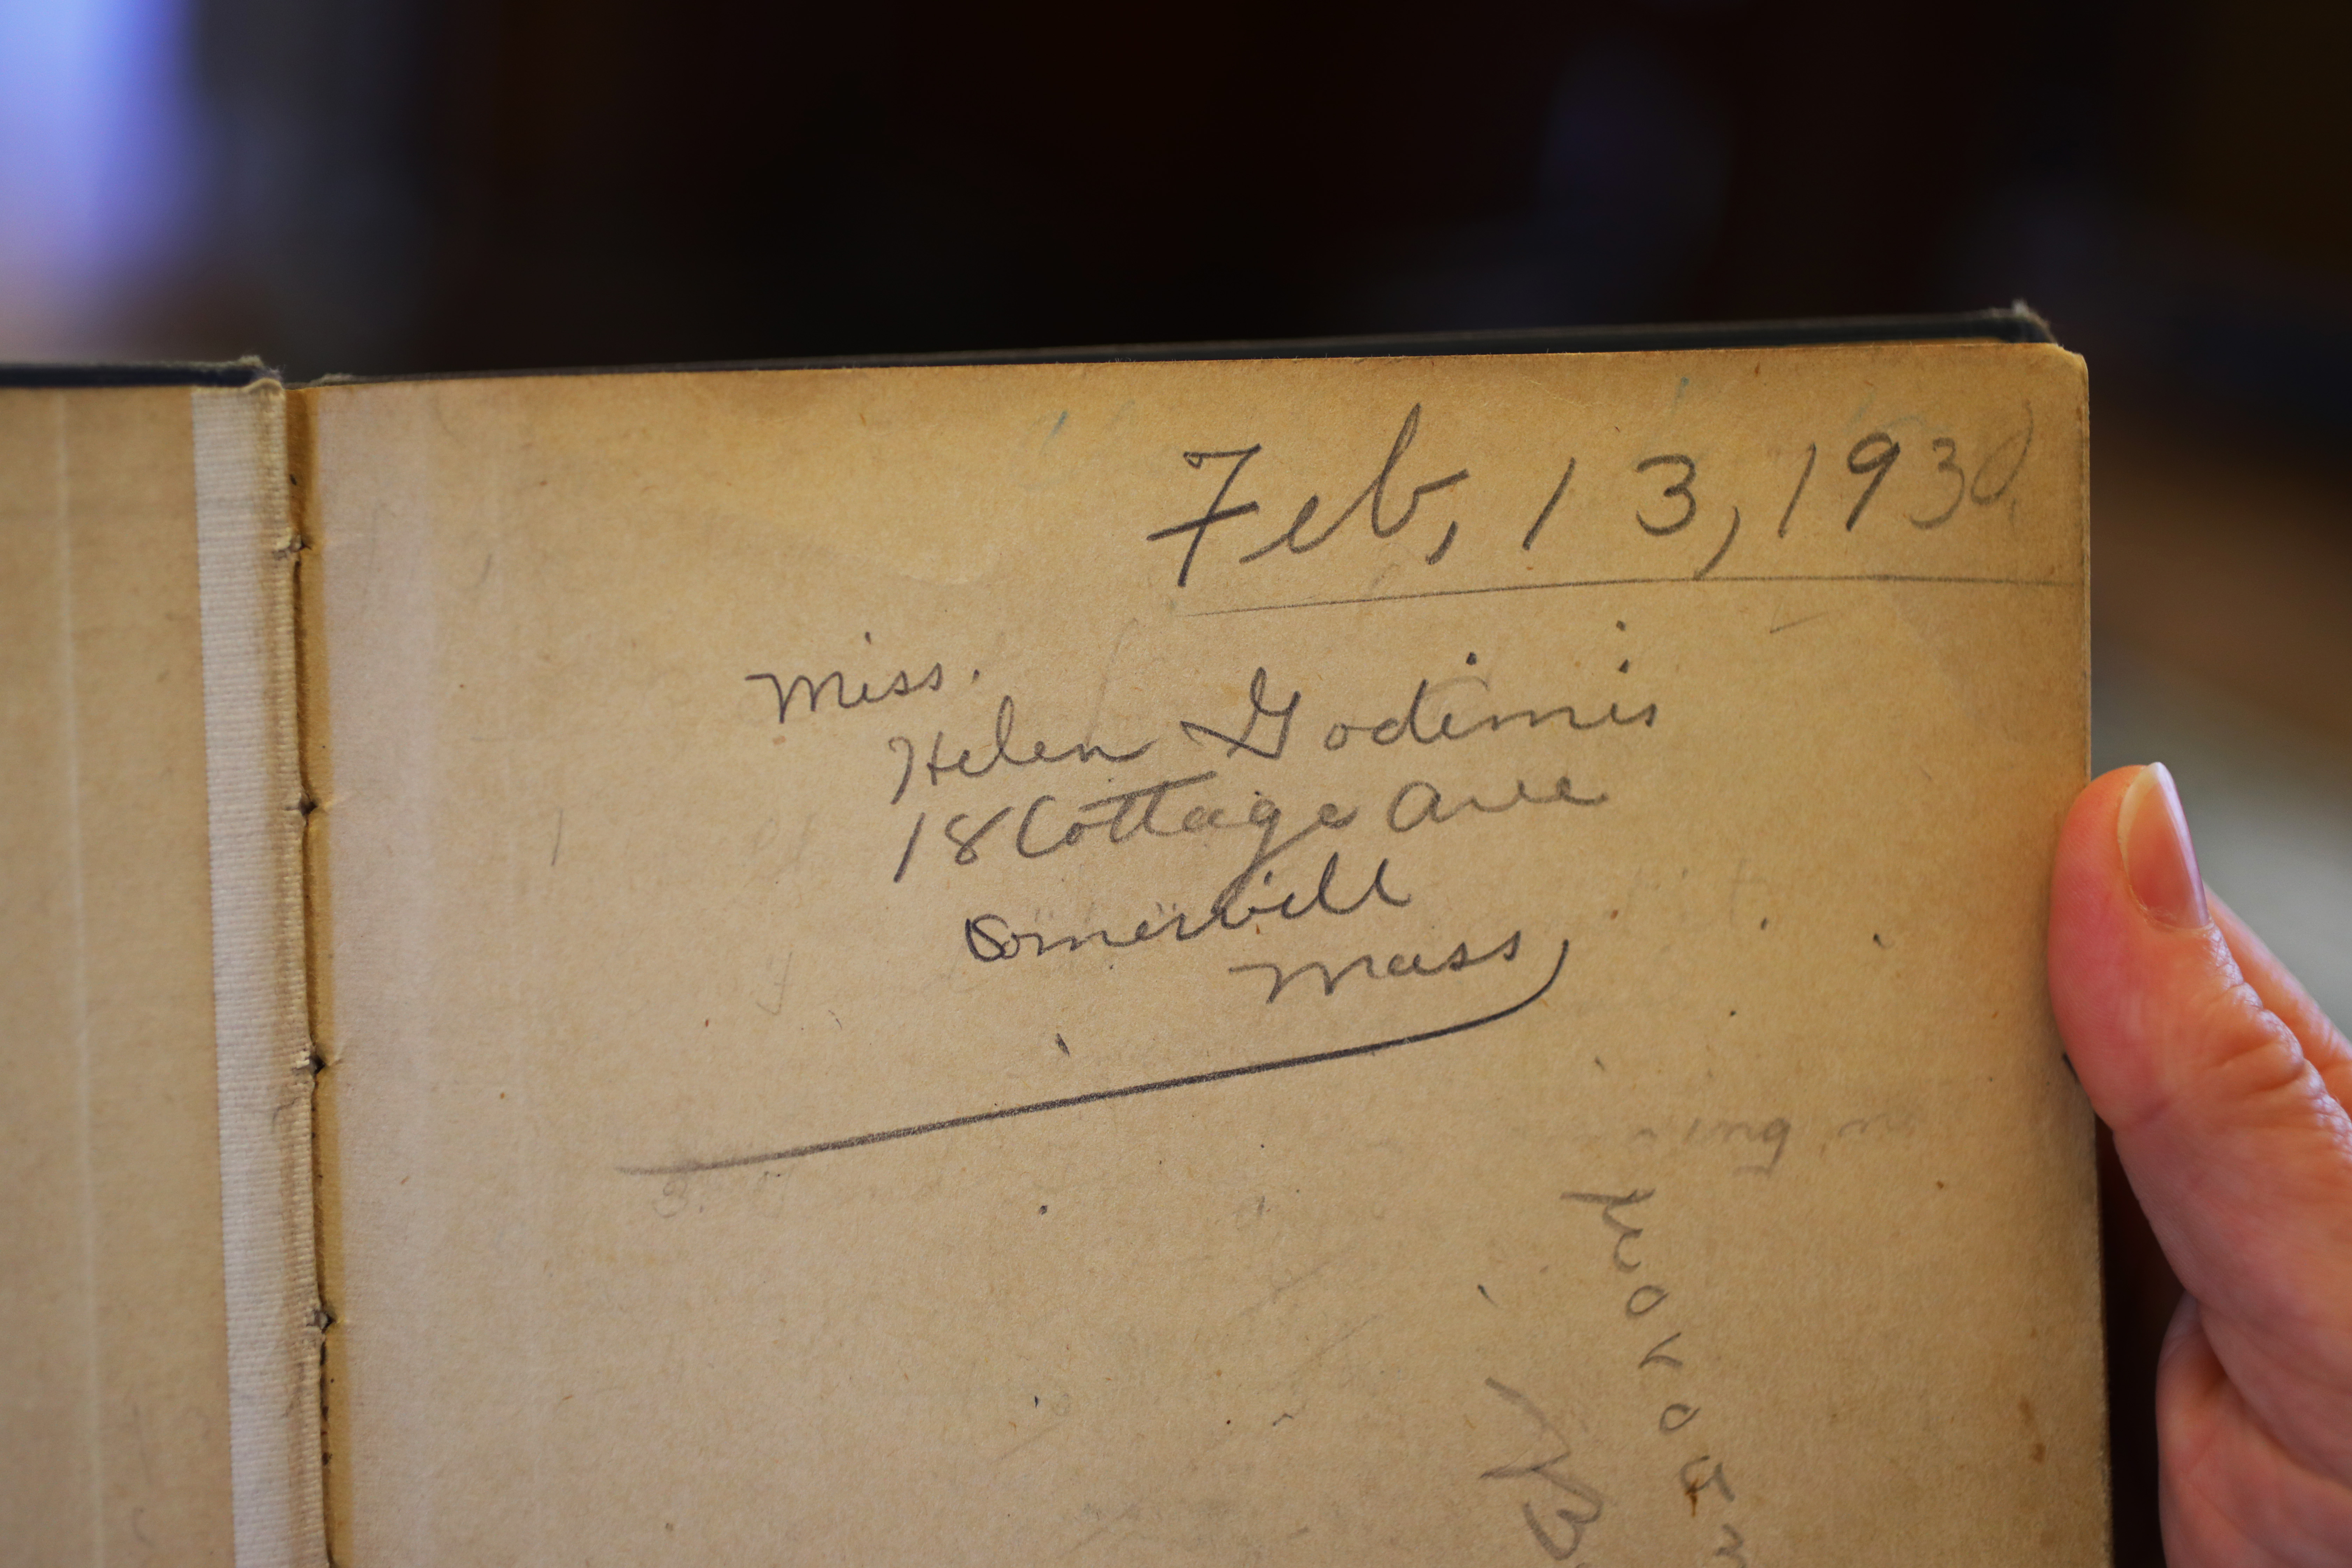 Feb, 13, 1930
Miss.
Helen Godimis
18 Cottage Ave
Somervill
Mass,